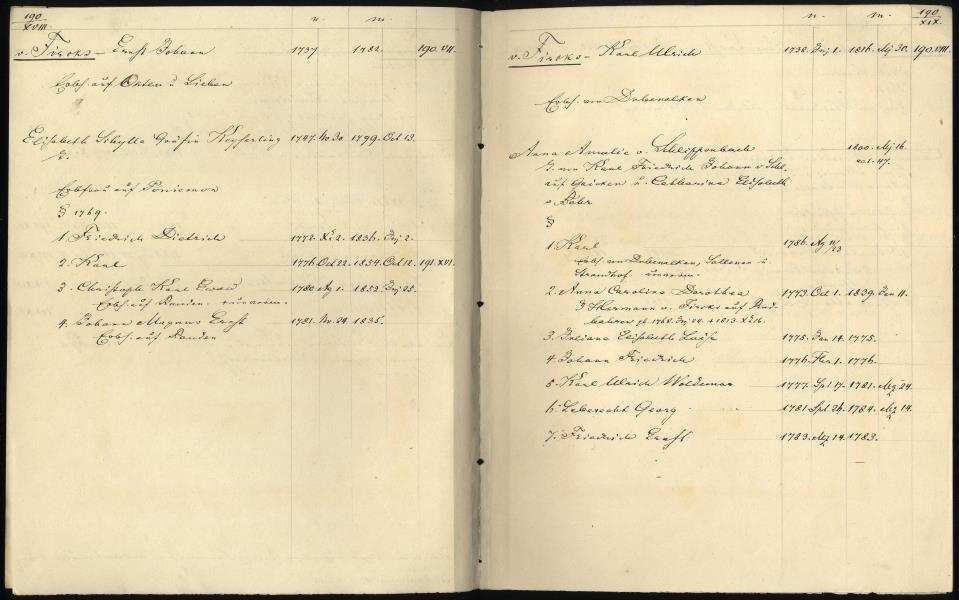 190
XVIII.
n.
m.
v. Fircks - Ernst Johann 1737 1782. 190.VII.
Erbh. auf Okten u Lieben
Elisabeth Sibylla Gräfin Keyserling 1747. No 30 1799. Oct 13.
Erbfrau auf Poniemon
§ 1769.
1. Friedrich Dietrich 1772. Xi 2. 1836. Juj 2.
2. Karl 1776 Oct 22. 1854. Oct 12. 191.XVI.
3. Christoph Karl Ewald 1780 Ag 1. 1852. Juj 25.
Erbh. auf Rauden
4. Johann Magnus Ernst 1781. Nv. 24. 1835.
Erbh. auf Rauden
n.
m.
190
XIX.
v. Fircks - Karl Ulrich 1738. Juj 1. 1816. Mj 30. 190.VIII.
Erbh. von Dubenalken
Anna Amalie v. Schlippenbach 1800. Mj 16.
E. von Karl Friedrich Johann v. Schl. 47.
auf Gaicken u. Catharina Elisabeth
v Behr
§
1. Karl 1786. Ag 11/23
Erbh. von Dubenalken, u
Strandhof
2. Anna Carolina Dorothea 1773. Oct 1. 1839. Jan 11.
§ Hermann v. Fircks auf
1768. Juj 24. + 1813. Xi 16.
3. Juliane Elisabeth Luise 1775. Jan 14. 1775.
4. Johann Friedrich 1776. Fbr 1. 1776.
5. Karl Ulrich Woldemar 1777. Spt 17. 1781. Mz 24.
6. Leberecht Georg 1781 Spt 24. 1784. Mz 14.
7. Friedrich Ernst 1783. Mz 14. 1783.